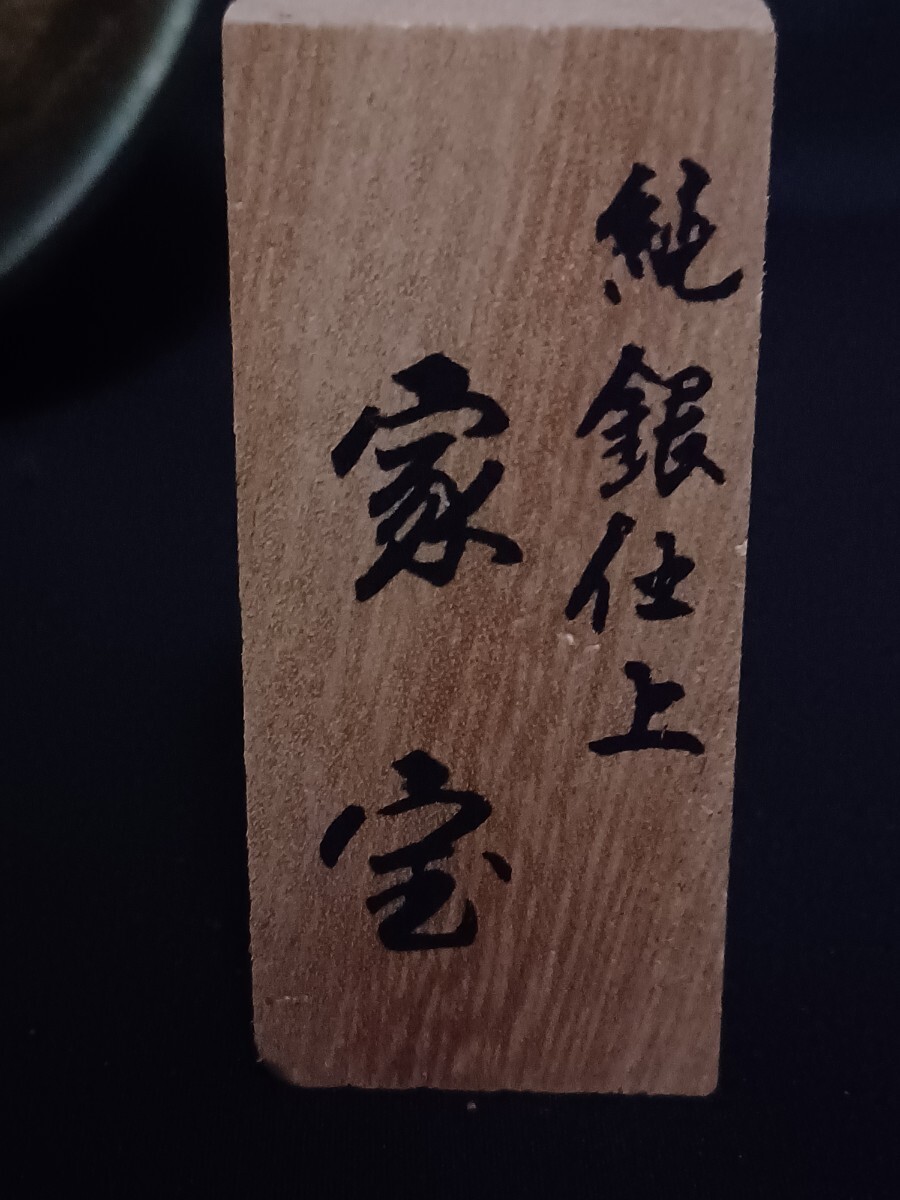 純銀仕上
家宝